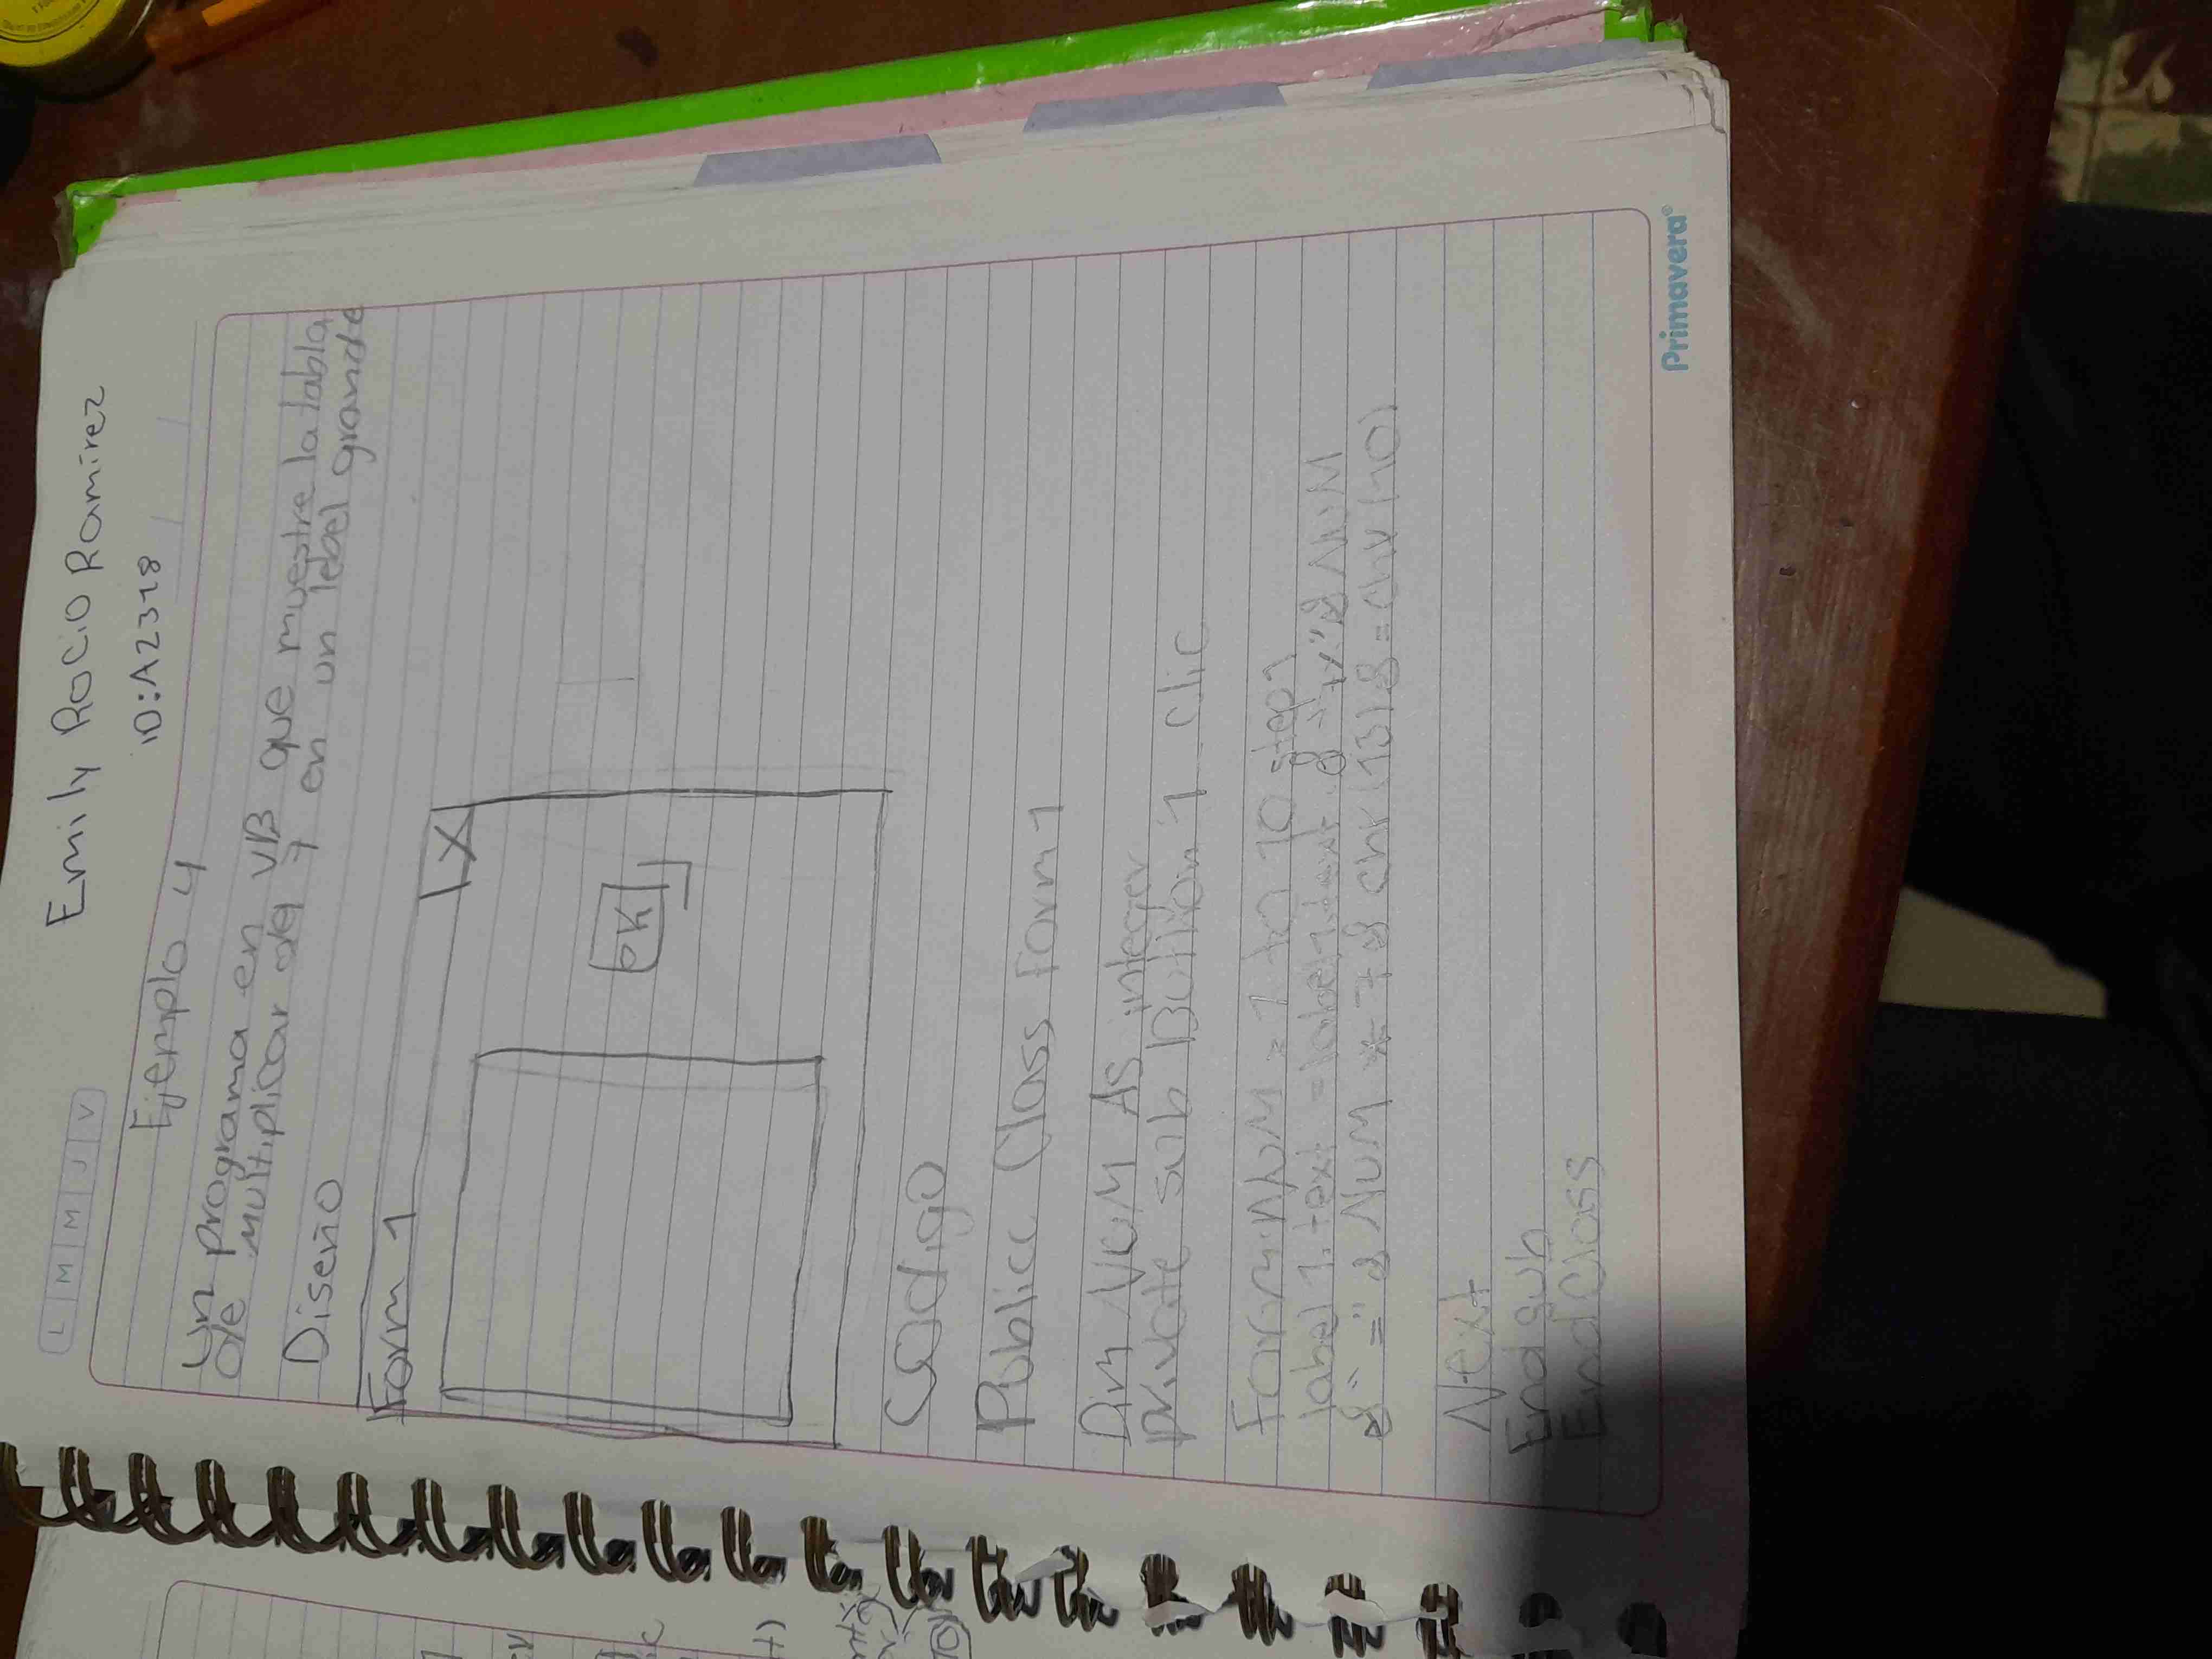 Emily Rocio Ramirez
ID: A2318
L M M J V
Ejemplo 4
Un programa en VB que muestre la tabla
de multiplicar del 7 en un lebel grande
Diseño
Form 1 X
OK
Codigo
Publicc Class Form 1
Dim NUM As integer
private sub Button 1 clic
For NUM = 1 to 10 step 1
label 1. text = label 1. text & "7x" & NUM
& "=" & NUM * 7 & chr(13) & chr(10)
Next
End sub
End Class
Primavera